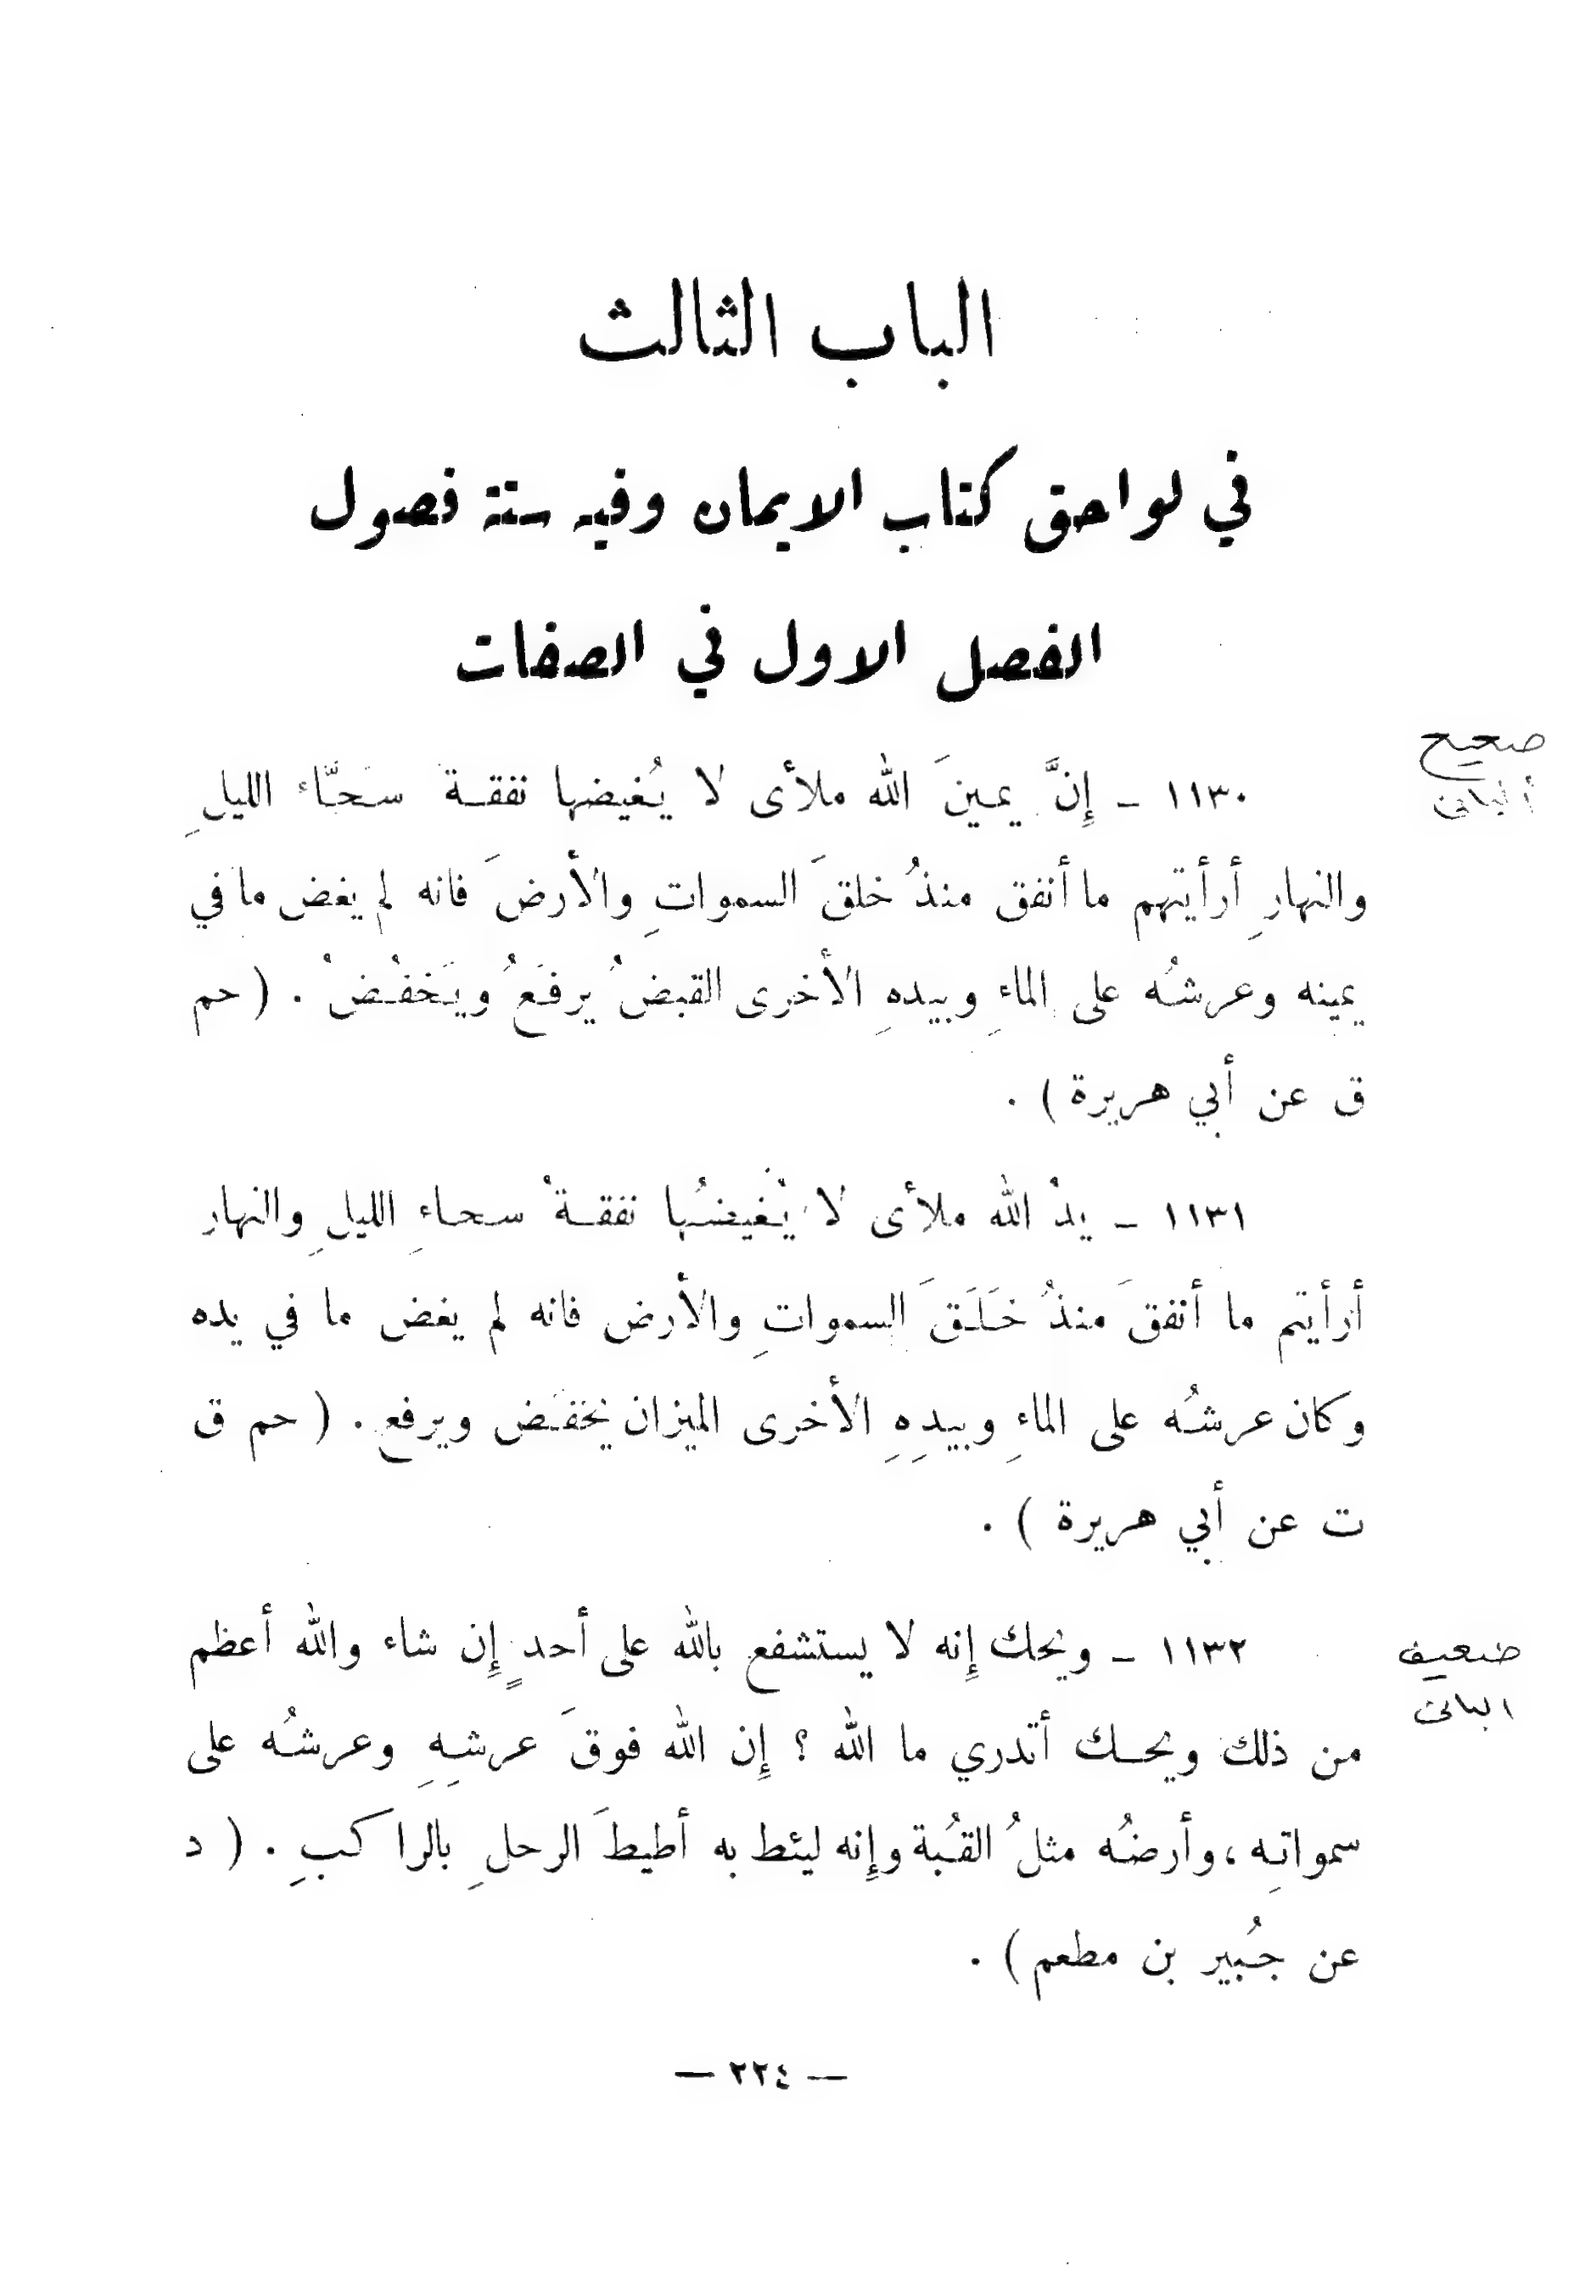 الباب الثالث
في لواحق كتاب الايمان وفيه ستة فصول
الفصل الاول في الصفات
صحيح
ألبانى
١١٣٠ ـ إِنَّ يمينَ الله ملأى لا يُغيضها نفقـة سَحَّاء الليلِ
والنهارِ أرأيتهم ما أنفق منذُ خلقَ السمواتِ والأرضَ فانه لم يغض ما في
يمينه وعرشُه على الماءِ وبيدهِ الأخرى القبضُ يرفَعُ ويَخفُضُ . ( حم
ق عن أبي هريرة ) .
١١٣١ ـ يدُ الله ملأى لا يُغيضُها نفقـةُ سحاءِ الليلِ والنهارِ
أرأيتم ما أنفقَ منذُ خَلَقَ السمواتِ والأرض فانه لم يغض ما في يده
وكان عرشُه على الماءِ وبيدِهِ الأخرى الميزان يخفض ويرفع . ( حم ق
ت عن أبي هريرة ) .
ضعيف
البانى
١١٣٢ ـ ويحك إِنه لا يستشفع بالله على أحدٍ إِن شاء والله أعظم
من ذلك ويحـك أتدري ما الله ؟ إِن الله فوقَ عرشِهِ وعرشُه على
سمواتِه ، وأرضُه مثلُ القُبة وإِنه ليئط به أطيطَ الرحلِ بالراكبِ . ( د
عن جُبير بن مطعم ) .
— ٢٢٤ —